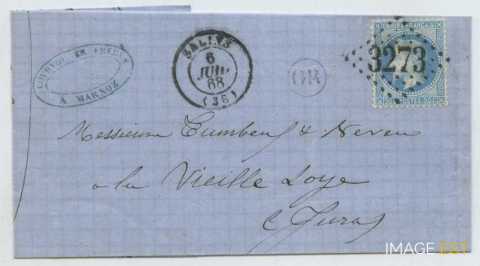 A MARNOZ
SALINS
6
JUIL
68
(38)
3273
Messieurs & Neveu
à la Vieille Loye
(Jura)
IMAGE EST